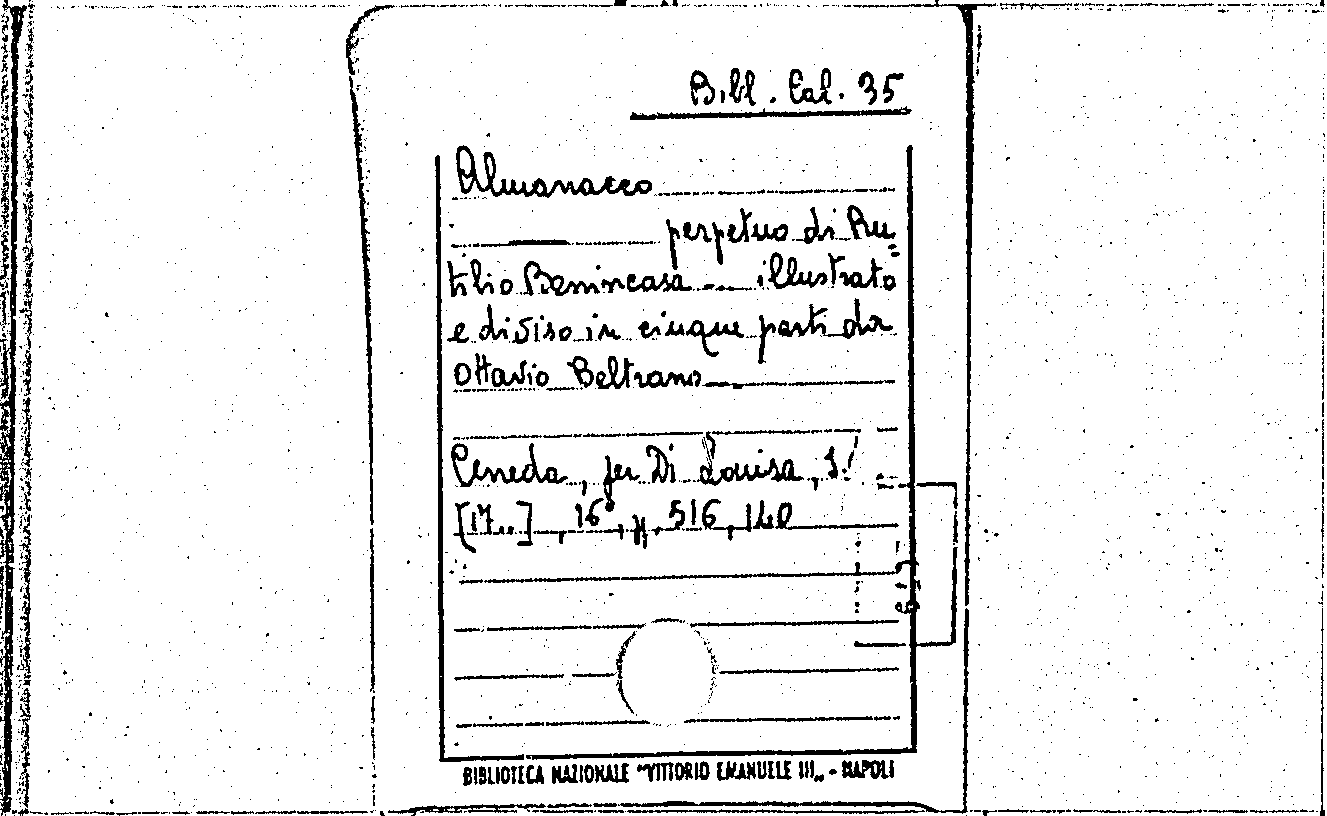 Bibl. Cal. 35
Almanacco
perpetuo di Ru=
tilio Benincasa ... illustrato
e diviso in cinque parti da
Ottavio Beltrano...
Ceneda, per Di Louisa, s.
[17..], 16°, pp. 516, 140
BIBLIOTECA NAZIONALE "VITTORIO EMANUELE III„ - NAPOLI